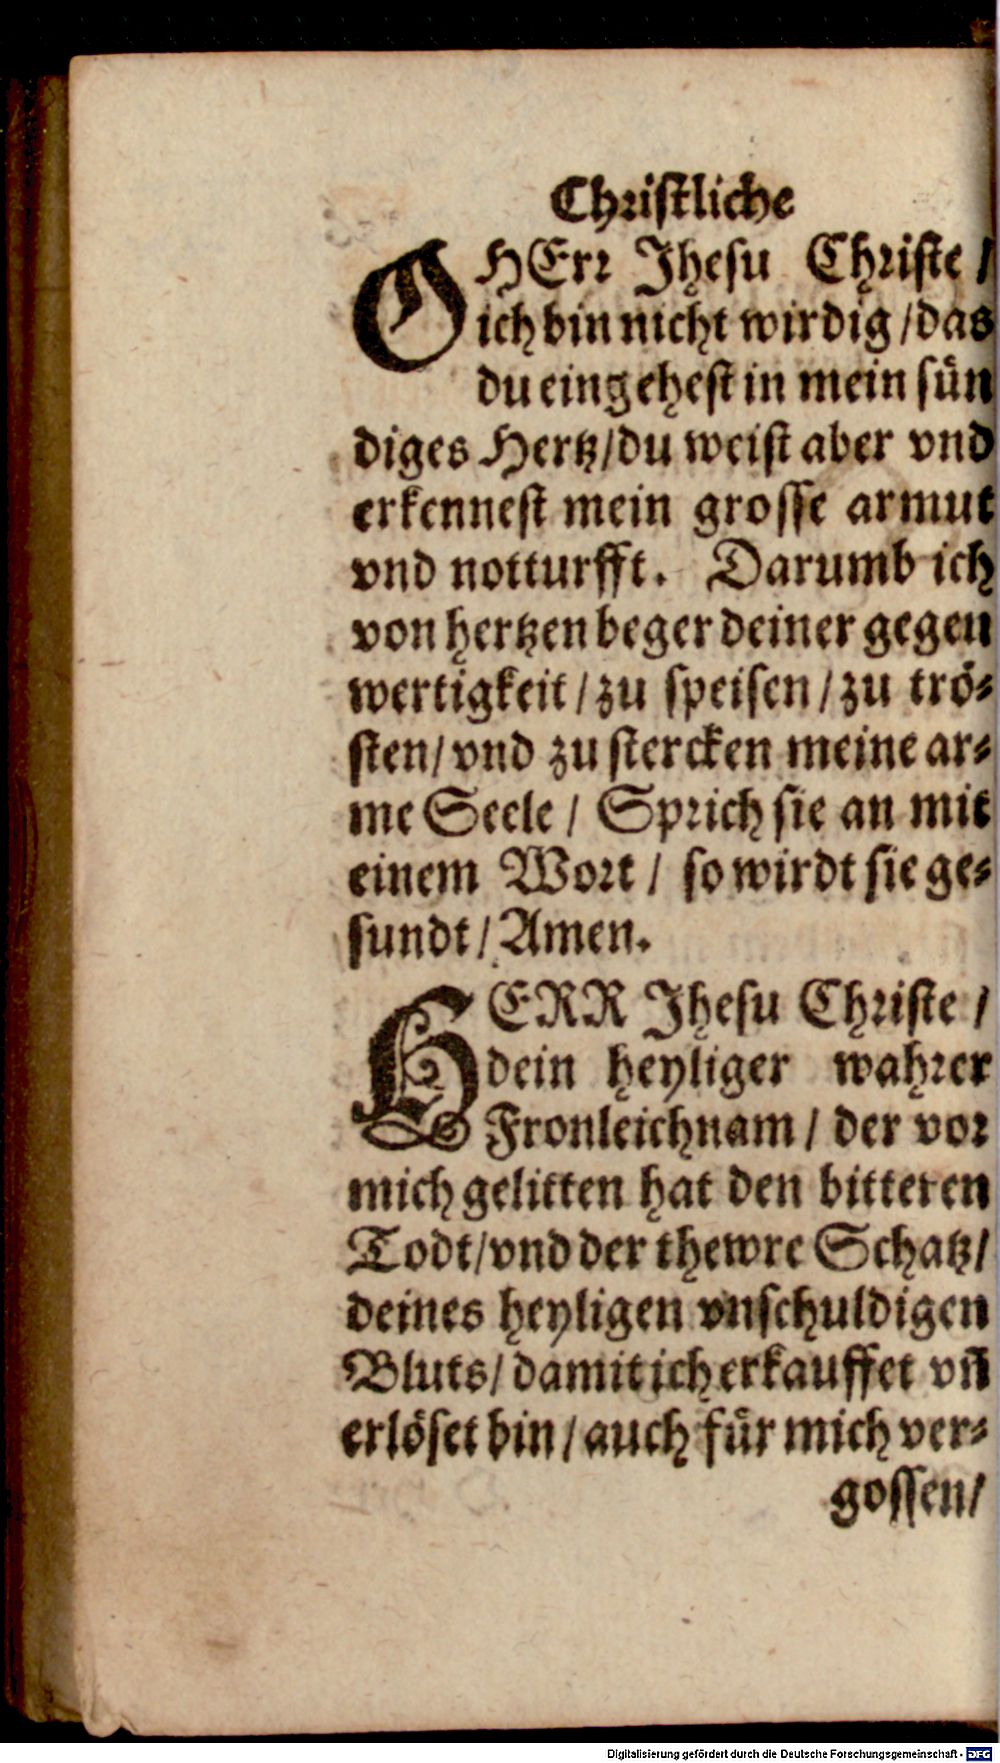 Christliche
O HErr Jhesu Christe /
ich bin nicht wirdig / das
du eingehest in mein sün
diges Hertz / du weist aber vnd
erkennest mein grosse armut
vnd notturfft. Darumb ich
von hertzen beger deiner gegen
wertigkeit / zu speisen / zu trö-
sten / vnd zu stercken meine ar-
me Seele / Sprich sie an mit
einem Wort / so wirdt sie ge-
sundt / Amen.
HERR Jhesu Christe /
dein heyliger wahrer
Fronleichnam / der vor
mich gelitten hat den bitteren
Todt / vnd der thewre Schatz /
deines heyligen vnschuldigen
Bluts / damit ich erkauffet vñ
erlöset bin / auch für mich ver-
gossen /
Digitalisierung gefördert durch die Deutsche Forschungsgemeinschaft - DFG